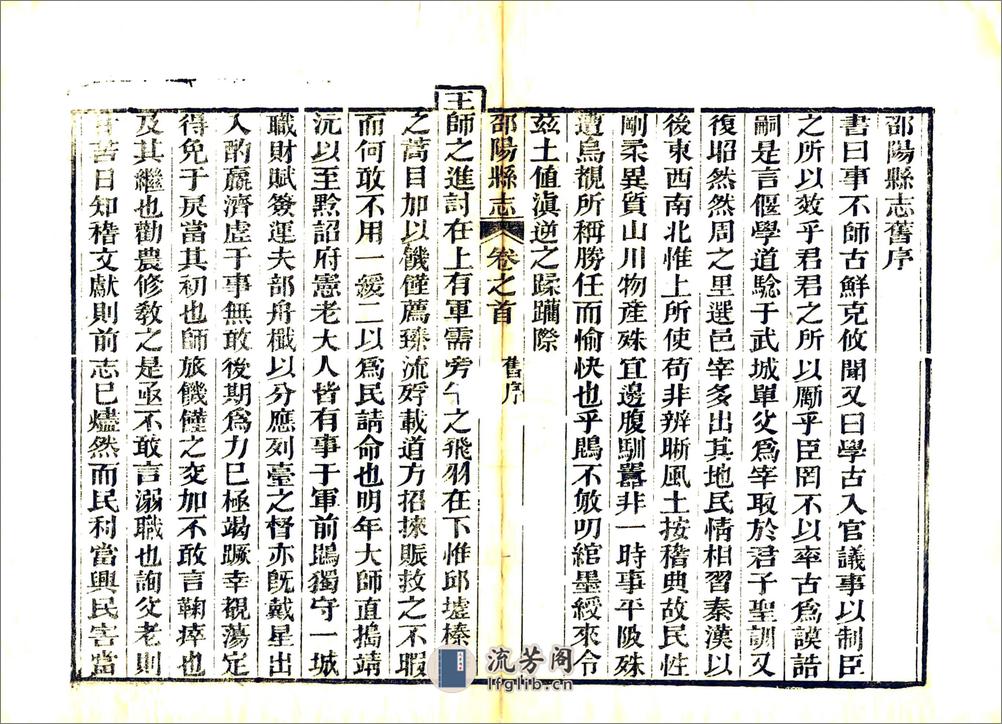 邵陽縣志舊序
書曰事不師古鮮克攸聞又曰學古入官議事以制臣
之所以效乎君君之所以厲乎臣罔不以率古爲謨誥
嗣是言偃學道騐于武城單父爲宰取於君子聖訓又
復昭然周之里選邑宰多出其地民情相習秦漢以
後東西南北惟上所使苟非辨晰風土按稽典故民性
剛柔異質山川物產殊宜邊腹馴囂非一時事平陂殊
遭烏覩所稱勝任而愉快也乎鵾不敏叨綰墨綬來令
茲土値滇逆之蹂躪際
邵陽縣志
卷之首
舊序
一
王師之進討在上有軍需旁午之飛羽在下惟邱墟榛
之蒿目加以饑饉薦臻流殍載道方招揀賑救之不暇
而何敢不用一緩二以爲民請命也明年大師直搗靖
沅以至黔詔府憲老大人皆有事于軍前鵾獨守一城
職財賦簽運夫部舟檝以分應列臺之督亦旣戴星出
入酌贏濟虛于事無敢後期爲力巳極竭蹶幸覩蕩定
得免于戾當其初也師旅饑饉之交加不敢言鞠瘁也
及其繼也勸農修敎之是亟不敢言溺職也詢父老則
言苦日知稽文獻則前志巳燼然而民利當興民害當
流芳阁
lfglib.cn